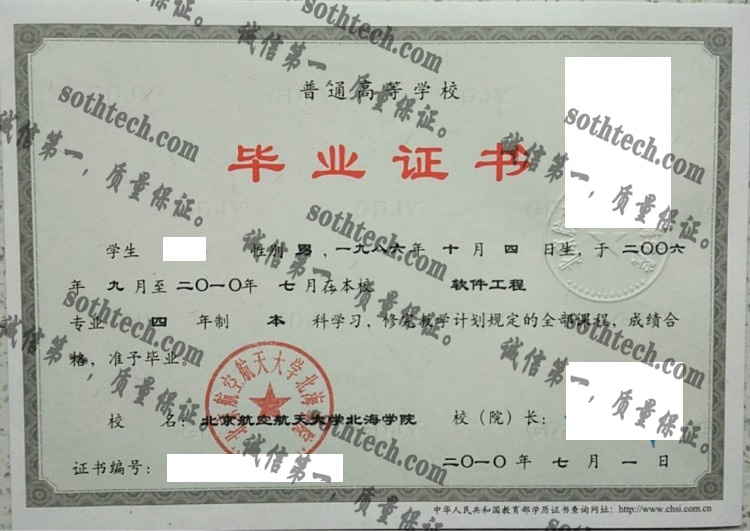 普通高等学校
毕业证书
学生 性别 男，一九八六年 十 月 四 日生，于 二〇〇六
年 九 月至 二〇一〇年 七 月在本校 软件工程
专业 四 年制 本 科学习，修完教学计划规定的全部课程，成绩合
格，准予毕业。
校 名：北京航空航天大学北海学院 校（院）长：
证书编号： 二〇一〇 年 七 月 一 日
中华人民共和国教育部学历证书查询网址：http://www.chsi.com.cn
北京航空航天大学北海学院
sothtech.com
诚信第一，质量保证。
sothtech.com
诚信第一，质量保证。
sothtech.com
诚信第一，质量保证。
sothtech.com
诚信第一，质量保证。
sothtech.com
诚信第一，质量保证。
sothtech.com
诚信第一，质量保证。
sothtech.com
诚信第一，质量保证。